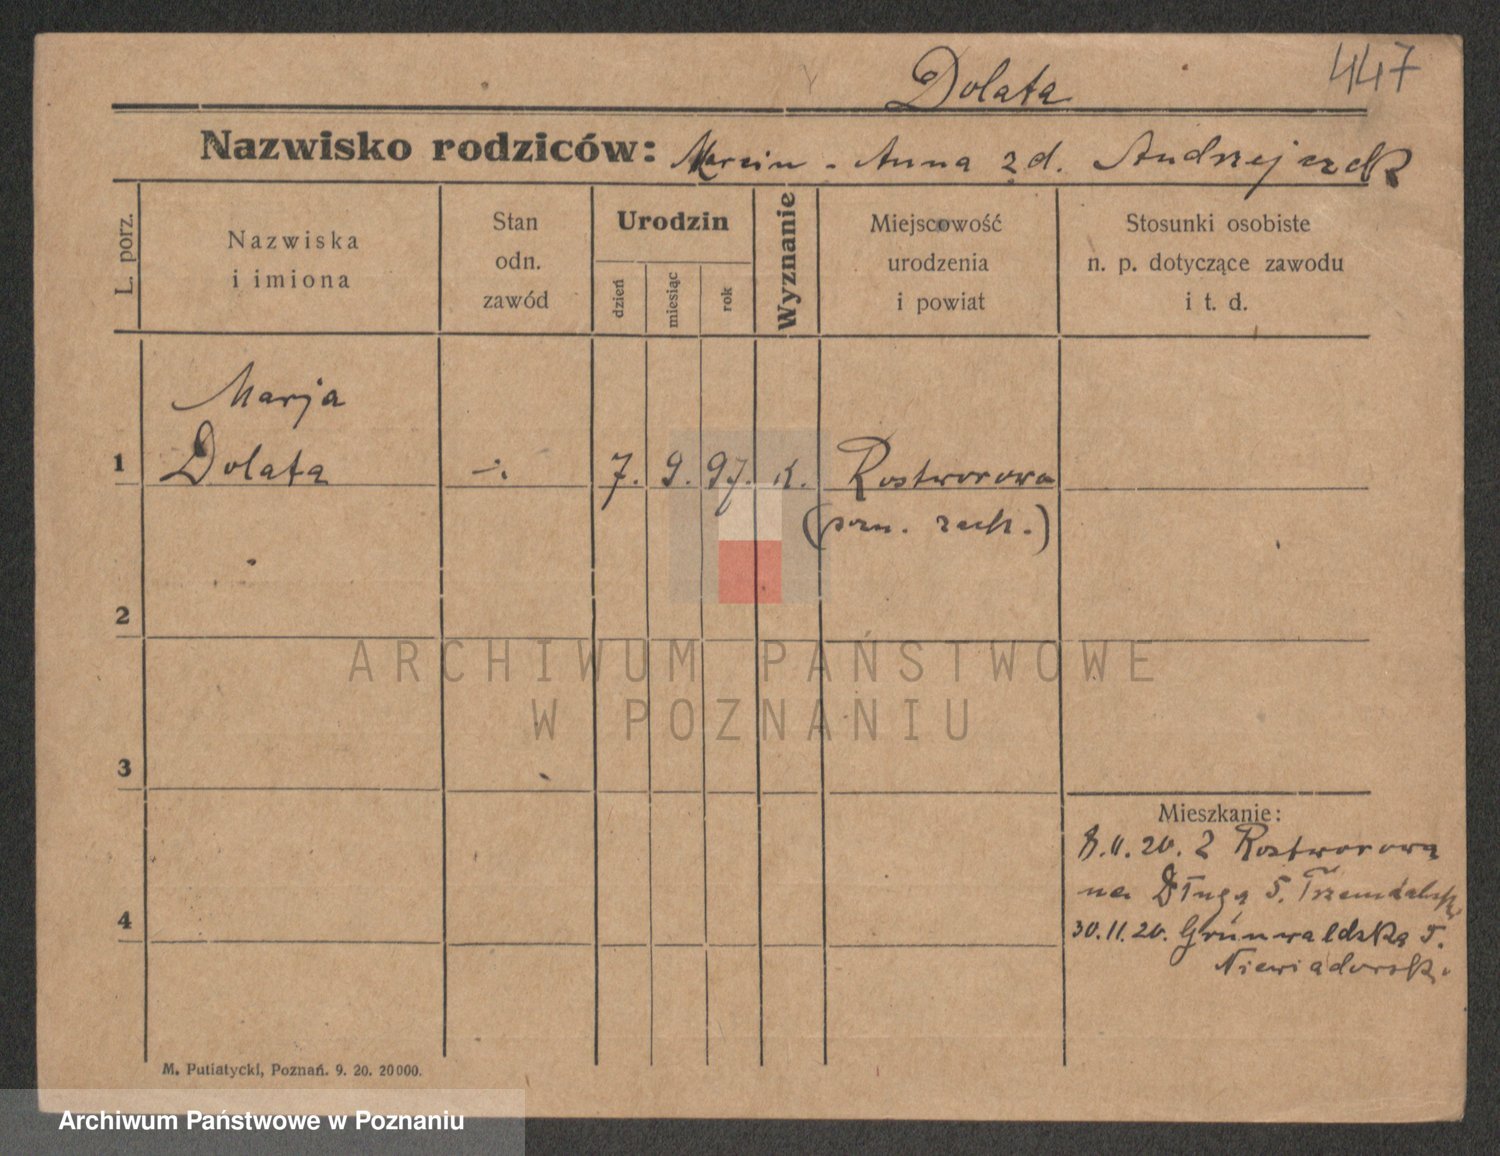 Dolata
447
Nazwisko rodziców: Marcin - Anna z d. Andrzejczak
L. porz.
Nazwiska
i imiona
Stan
odn.
zawód
Urodzin
dzień
miesiąc
rok
Wyznanie
Miejscowość
urodzenia
i powiat
Stosunki osobiste
n. p. dotyczące zawodu
i t. d.
Marja
1 Dolata -. 7. 9. 97. k. Rostworowo
(pozn. zach.)
2
3
4
ARCHIWUM PAŃSTWOWE
W POZNANIU
Mieszkanie:
20. z Rostworowa
na Długą 5.
30.11.20. Grunwaldska 5.
M. Putiatycki, Poznań. 9. 20. 20000.
Archiwum Państwowe w Poznaniu